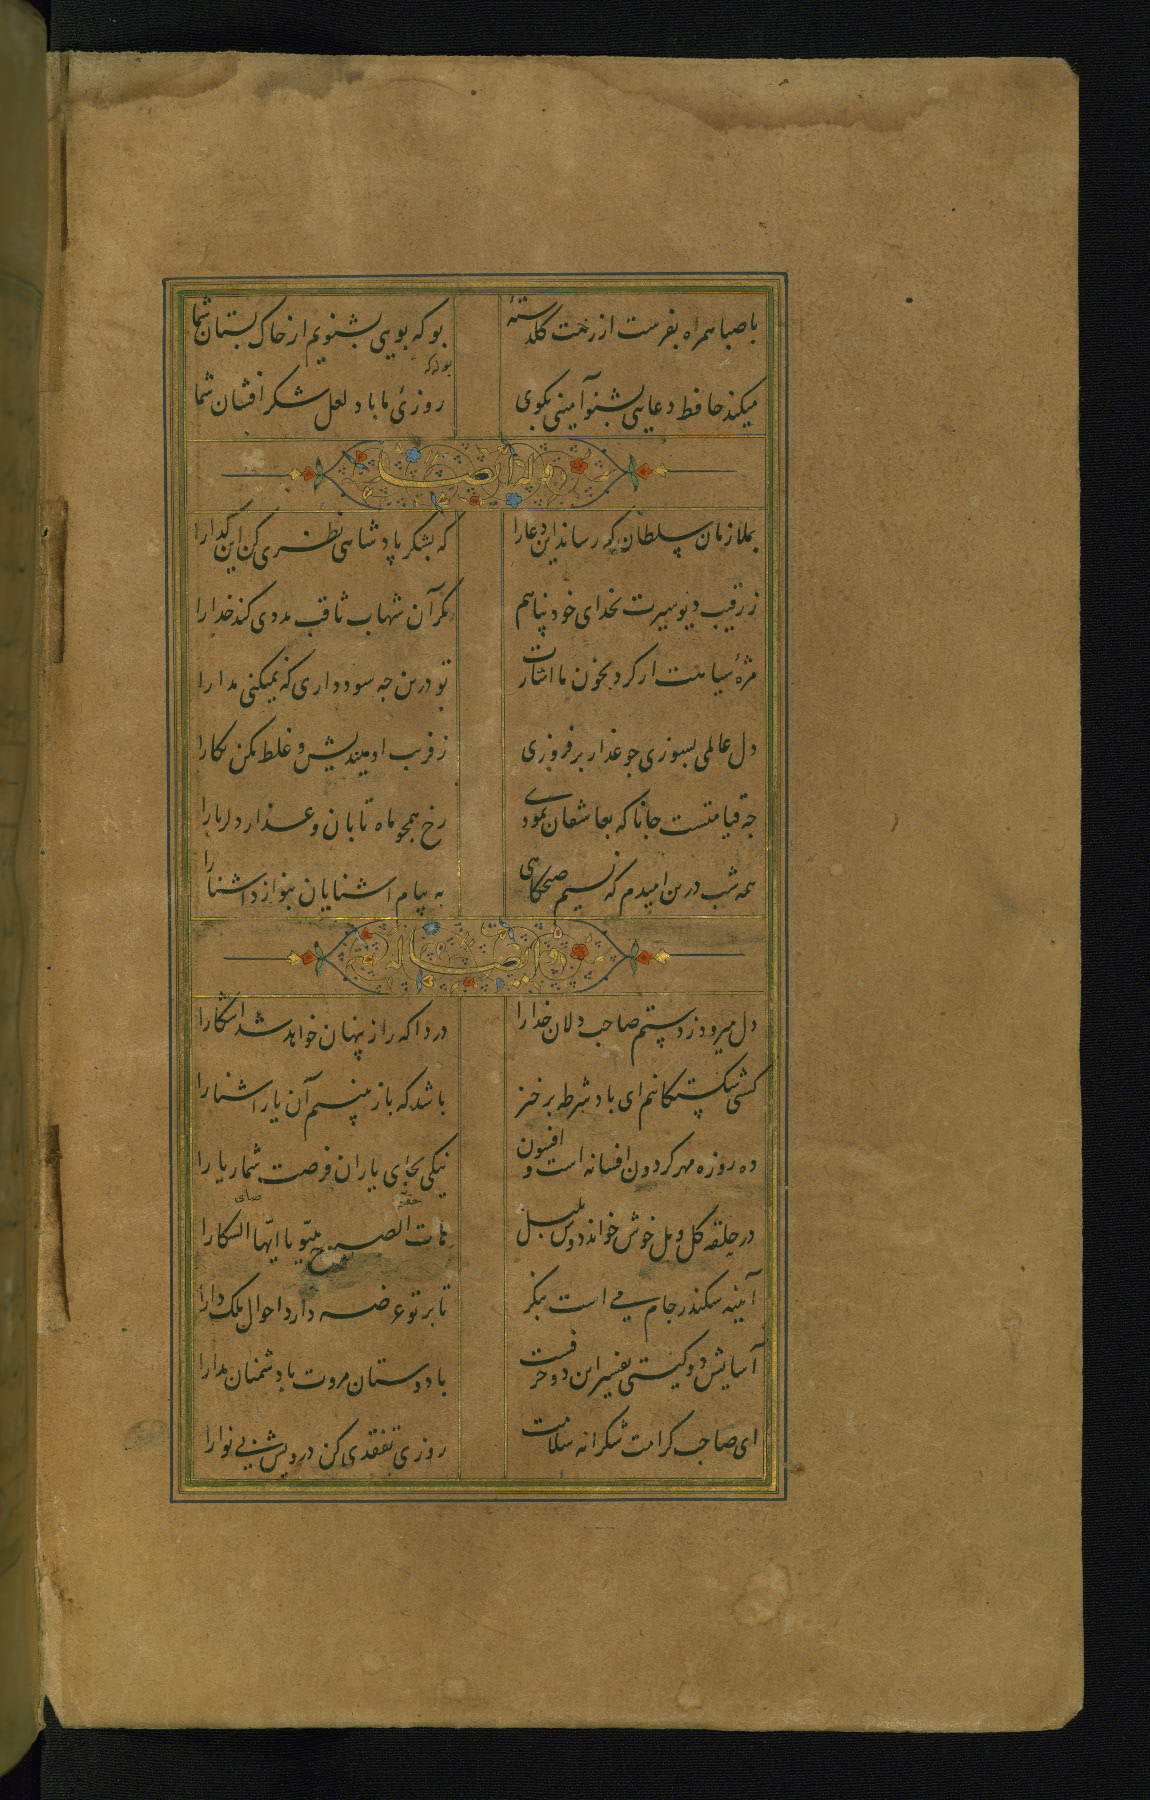 با صبا همراه بفرست از رخت گلدستهٔ بو که بویی بشنویم از خاک بستان شما
بود که
میکند حافظ دعایی بشنو آمینی بکوی روزیٔ ما باد لعل شکر افشان شما
وله ایضا
بملازمان سلطان که رساند این دعا را که بشکر پادشاهی نظری کن این کدا را
ز رقیب دیو سیرت بخدای خود پناهم مکر آن شهاب ثاقب مددی کند خدا را
مژهٔ سیاهت ار کرد بخون ما اشارت تو درین چه سود داری که نمیکنی مدارا
دل عالمی بسوزی چو عذار بر فروزی ز فریب او میندیش و غلط مکن نکارا
چه قیامتست جانا که بعاشقان نمودی رخ همچو ماه تابان و عذار دلربا را
همه شب درین امیدم که نسیم صبحکاهی به پیام اشنایان بنوازد اشنا را
و ایضا له
دل میرود ز دستم صاحب دلان خدا را دردا که راز پنهان خواهد شد اشکارا
کشتی شکستکانیم ای باد شرطه برخیز باشد که باز بینیم آن یار اشنا را
ده روزه مهر کردون افسانه است و افسون نیکی بجای یاران فرصت شمار یارا
در حلقه کل و مل خوش خواند دوش بلبل هات الصبوح هیّوا یا ایّها السکارا
آیینه سکندر جام می است بنکر تا بر تو عرضه دارد احوال ملک دارا
آسایش دو کیتی تفسیر این دو حرفست با دوستان مروت با دشمنان مدارا
ای صاحب کرامت شکرانه سلامت روزی تفقدی کن درویش بی نوا را